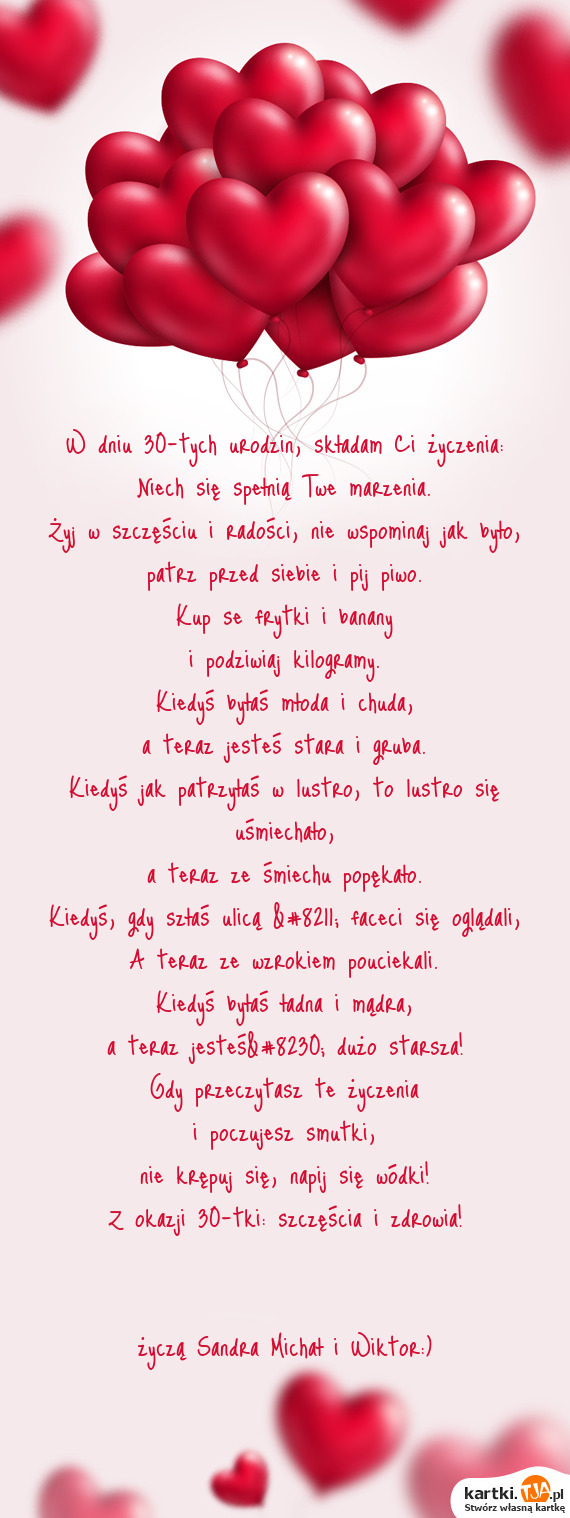 W dniu 30-tych urodzin, składam Ci życzenia:
Niech się spełnią Twe marzenia.
Żyj w szczęściu i radości, nie wspominaj jak było,
patrz przed siebie i pij piwo.
Kup se frytki i banany
i podziwiaj kilogramy.
Kiedyś byłaś młoda i chuda,
a teraz jesteś stara i gruba.
Kiedyś jak patrzyłaś w lustro, to lustro się
uśmiechało,
a teraz ze śmiechu popękało.
Kiedyś, gdy szłaś ulicą &#8211; faceci się oglądali,
A teraz ze wzrokiem pouciekali.
Kiedyś byłaś ładna i mądra,
a teraz jesteś&#8230; dużo starsza!
Gdy przeczytasz te życzenia
i poczujesz smutki,
nie krępuj się, napij się wódki!
Z okazji 30-tki: szczęścia i zdrowia!
życzą Sandra Michał i Wiktor:)
kartki.TJA.pl
Stwórz własną kartkę